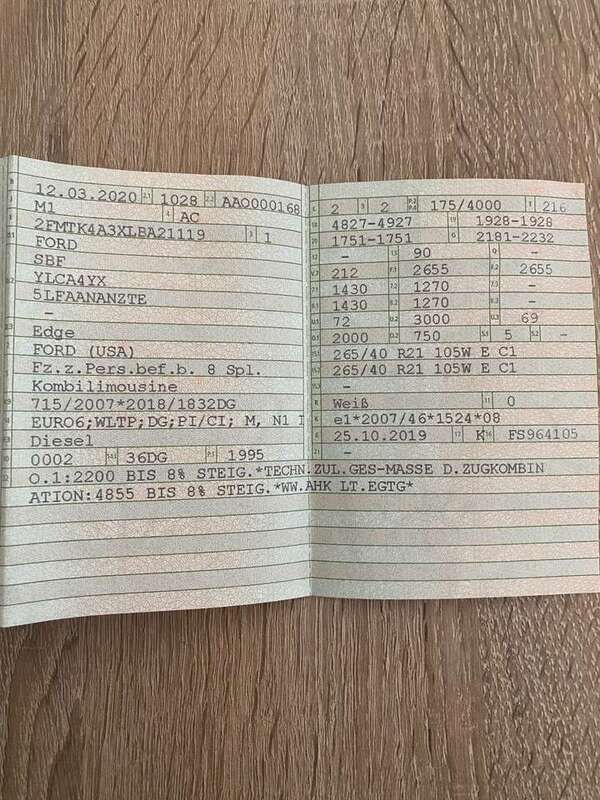 12.03.2020 2.1 1028 2.2 AAO000168
M1 4 AC
2FMTK4A3XLBA21119 3 1
FORD
SBF
YLCA4YX
5LFAANANZTE
–
Edge
FORD (USA)
Fz.z.Pers.bef.b. 8 Spl.
Kombilimousine
715/2007*2018/1832DG
EURO6;WLTP;DG;PI/CI; M, N1 I
Diesel
0002 14.1 36DG P.1 1995
L 2 9 2 P.2 P.4 175/4000 T 216
18 4827-4927 19 1928-1928
20 1751-1751 G 2181-2232
– 13 90 Q –
V.7 212 F.1 2655 F.2 2655
7.1 1430 7.2 1270 –
8.1 1430 8.2 1270 –
U.1 72 U.2 3000 U.3 69
O.1 2000 O.2 750 S.1 5 S.2 –
15.1 265/40 R21 105W E C1
15.2 265/40 R21 105W E C1
15.3 –
R Weiß 11 0
K e1*2007/46*1524*08
6 25.10.2019 17 K 16 FS964105
21 –
O.1:2200 BIS 8% STEIG.*TECHN.ZUL.GES-MASSE D.ZUGKOMBIN
ATION:4855 BIS 8% STEIG.*WW.AHK LT.EGTG*